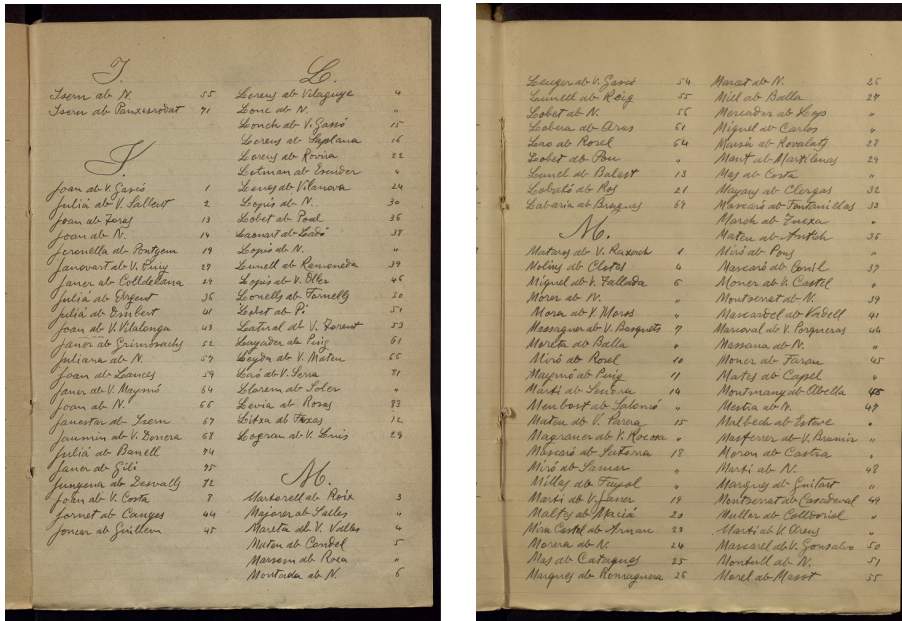 I.
Isern ab N. 55
Isern ab Panxesrodat 71
J.
Joan ab V. Gascó 1
Juliá ab V. Salbert 2
Joan ab Fores 13
Joan ab N. 14
Jeronella ab Pontgem 19
Janovart ab V. Puig 27
Janer ab Colldelana 29
Juliá ab Argent 36
Juliá ab Imbert 41
Joan ab V. Vilalonga 43
Janer ab Grimosachs 52
Juliana ab N. 57
Joan ab Lances 59
Janer ab V. Maymó 64
Joan ab N. 66
Janestar ab Isern 67
Jaumin ab V. Donera 68
Juliá ab Banell 74
Janer ab Gili 75
Junyena ab Desvalls 72
Joan ab V. Costa 8
Jornet ab Canyes 44
Joncar ab Guillem 45
L.
Llorens ab Vilaguye 4
Llonc ab N. "
Llonch ab V. Gassó 15
Llorens ab Saplana 16
Llorens ab Rovira 22
Lotman ab Escuder "
Llenes ab Vilanova 24
Llopis ab N. 30
Llobet ab Poal 36
Laonart ab Lladó 38
Llopis ab N. "
Llunell ab Ramoneda 39
Llopis ab V. Oller 46
Lleonells ab Fornells 50
Llobet ab Pi 51
Lastiral ab V. Forent 53
Layader ab Puig 61
Leyda ab V. Mateu 66
Laó ab V. Serra 71
Llorem ab Soler "
Levia ab Rosas 83
Litxa ab Fixas 12
Logran ab V. Louis 29
M.
Martorell ab Roix 3
Majorer ab Salles "
Mareta ab V. Valles 4
Mateu ab Candel 5
Marsom ab Roca "
Montada ab N. 6
Lleuger ab V. Gascó 54
Llunell ab Reig 55
Llobet ab N. 56
Llobera ab Arus 61
Lao ab Rosel 64
Llobet ab Pou "
Llunell ab Balest 13
Lobató ab Ros 21
Labaria ab Brugues 69
M.
Mataros ab V. Ruxach 1
Molins ab Clotes 4
Miguel ab V. Fallada 6
Morer ab N. "
Mora ab V. Moros "
Massaguer ab V. Basquets 7
Moreta ab Balla "
Miró ab Rosel 10
Maymó ab Puig 11
Martí ab Sendra 14
Menbost ab Salomó "
Mateu ab V. Parera 15
Magraner ab V. Rocosa "
Mascaró ab Saforna 18
Miró ab Samar "
Millas ab Fuyol "
Martí ab V. Janer 19
Maltes ab Maciá 20
Mira Castel ab Arnau 23
Morera ab N. 24
Mas ab Cataques 25
Marques ab Romaguera 26
Marcet ab N. 26
Miel ab Balla 27
Mercader ab Lop "
Miquel ab Carlos "
Marsá ab Rovalats 28
Mant ab Martilenas 29
Mas ab Costa "
Mayans ab Clergas 32
Mascaró ab Fontanillas 33
March ab Fuexa "
Mateu ab Antich 36
Miró ab Pons "
Mascaró ab Conil 37
Moner ab V. Castel "
Montserrat ab N. 39
Mascardel ab Vadell 41
Marcoval ab V. Porqueras 44
Massana ab N. "
Moner ab Farau 45
Mates ab Capel "
Montmany ab Abella 45
Mestra ab N. 47
Malbech ab Esteve "
Masferrer ab V. Brunin "
Moron ab Castra "
Marti ab N. 48
Marques ab Guitart "
Montserrat ab Casadeval 49
Mullar ab Colldorial "
Martí ab V. Arens "
Mascarel ab V. Gonsalvo 50
Montull ab N. 51
Morel ab Masst 55